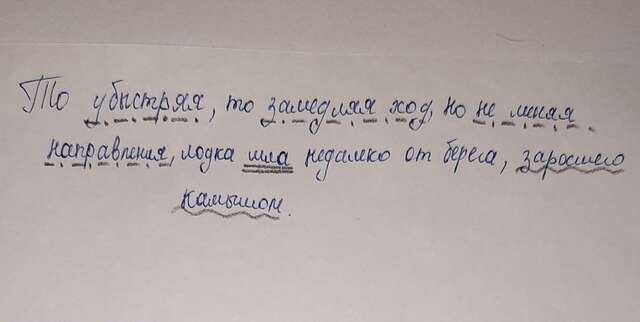 То убыстряя, то замедляя ход, но не меняя
направления, лодка шла недалеко от берега, заросшего
камышом.